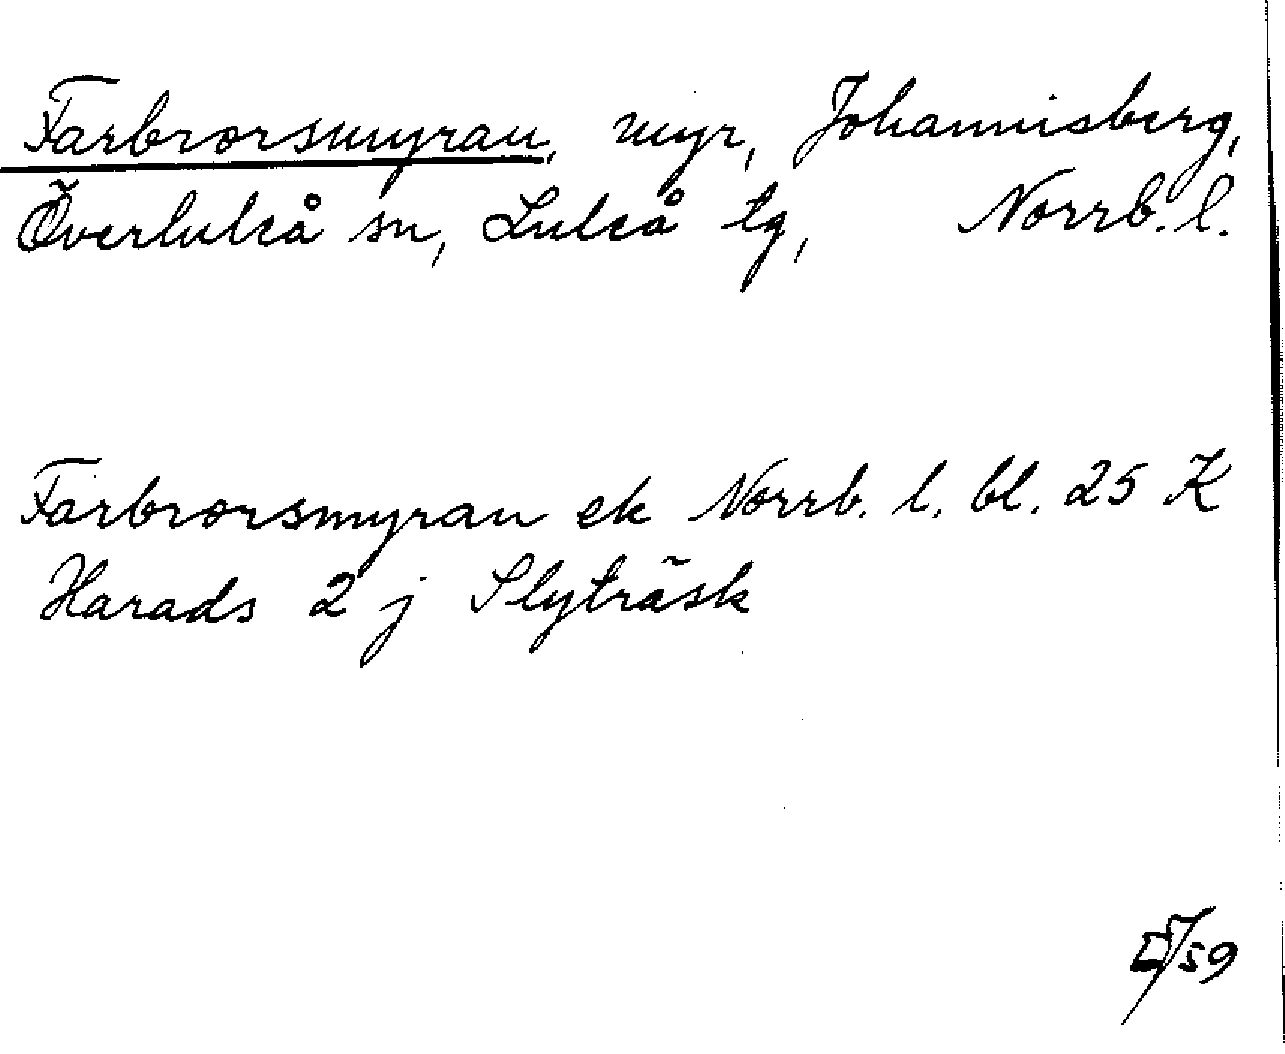 Farbrorsmyran, myr, Johannisberg,
Överluleå sn, Luleå tg, Norrb. l.
Farbrorsmyran ek Norrb. l. bl. 25 K
Harads 2 j Slyträsk
59